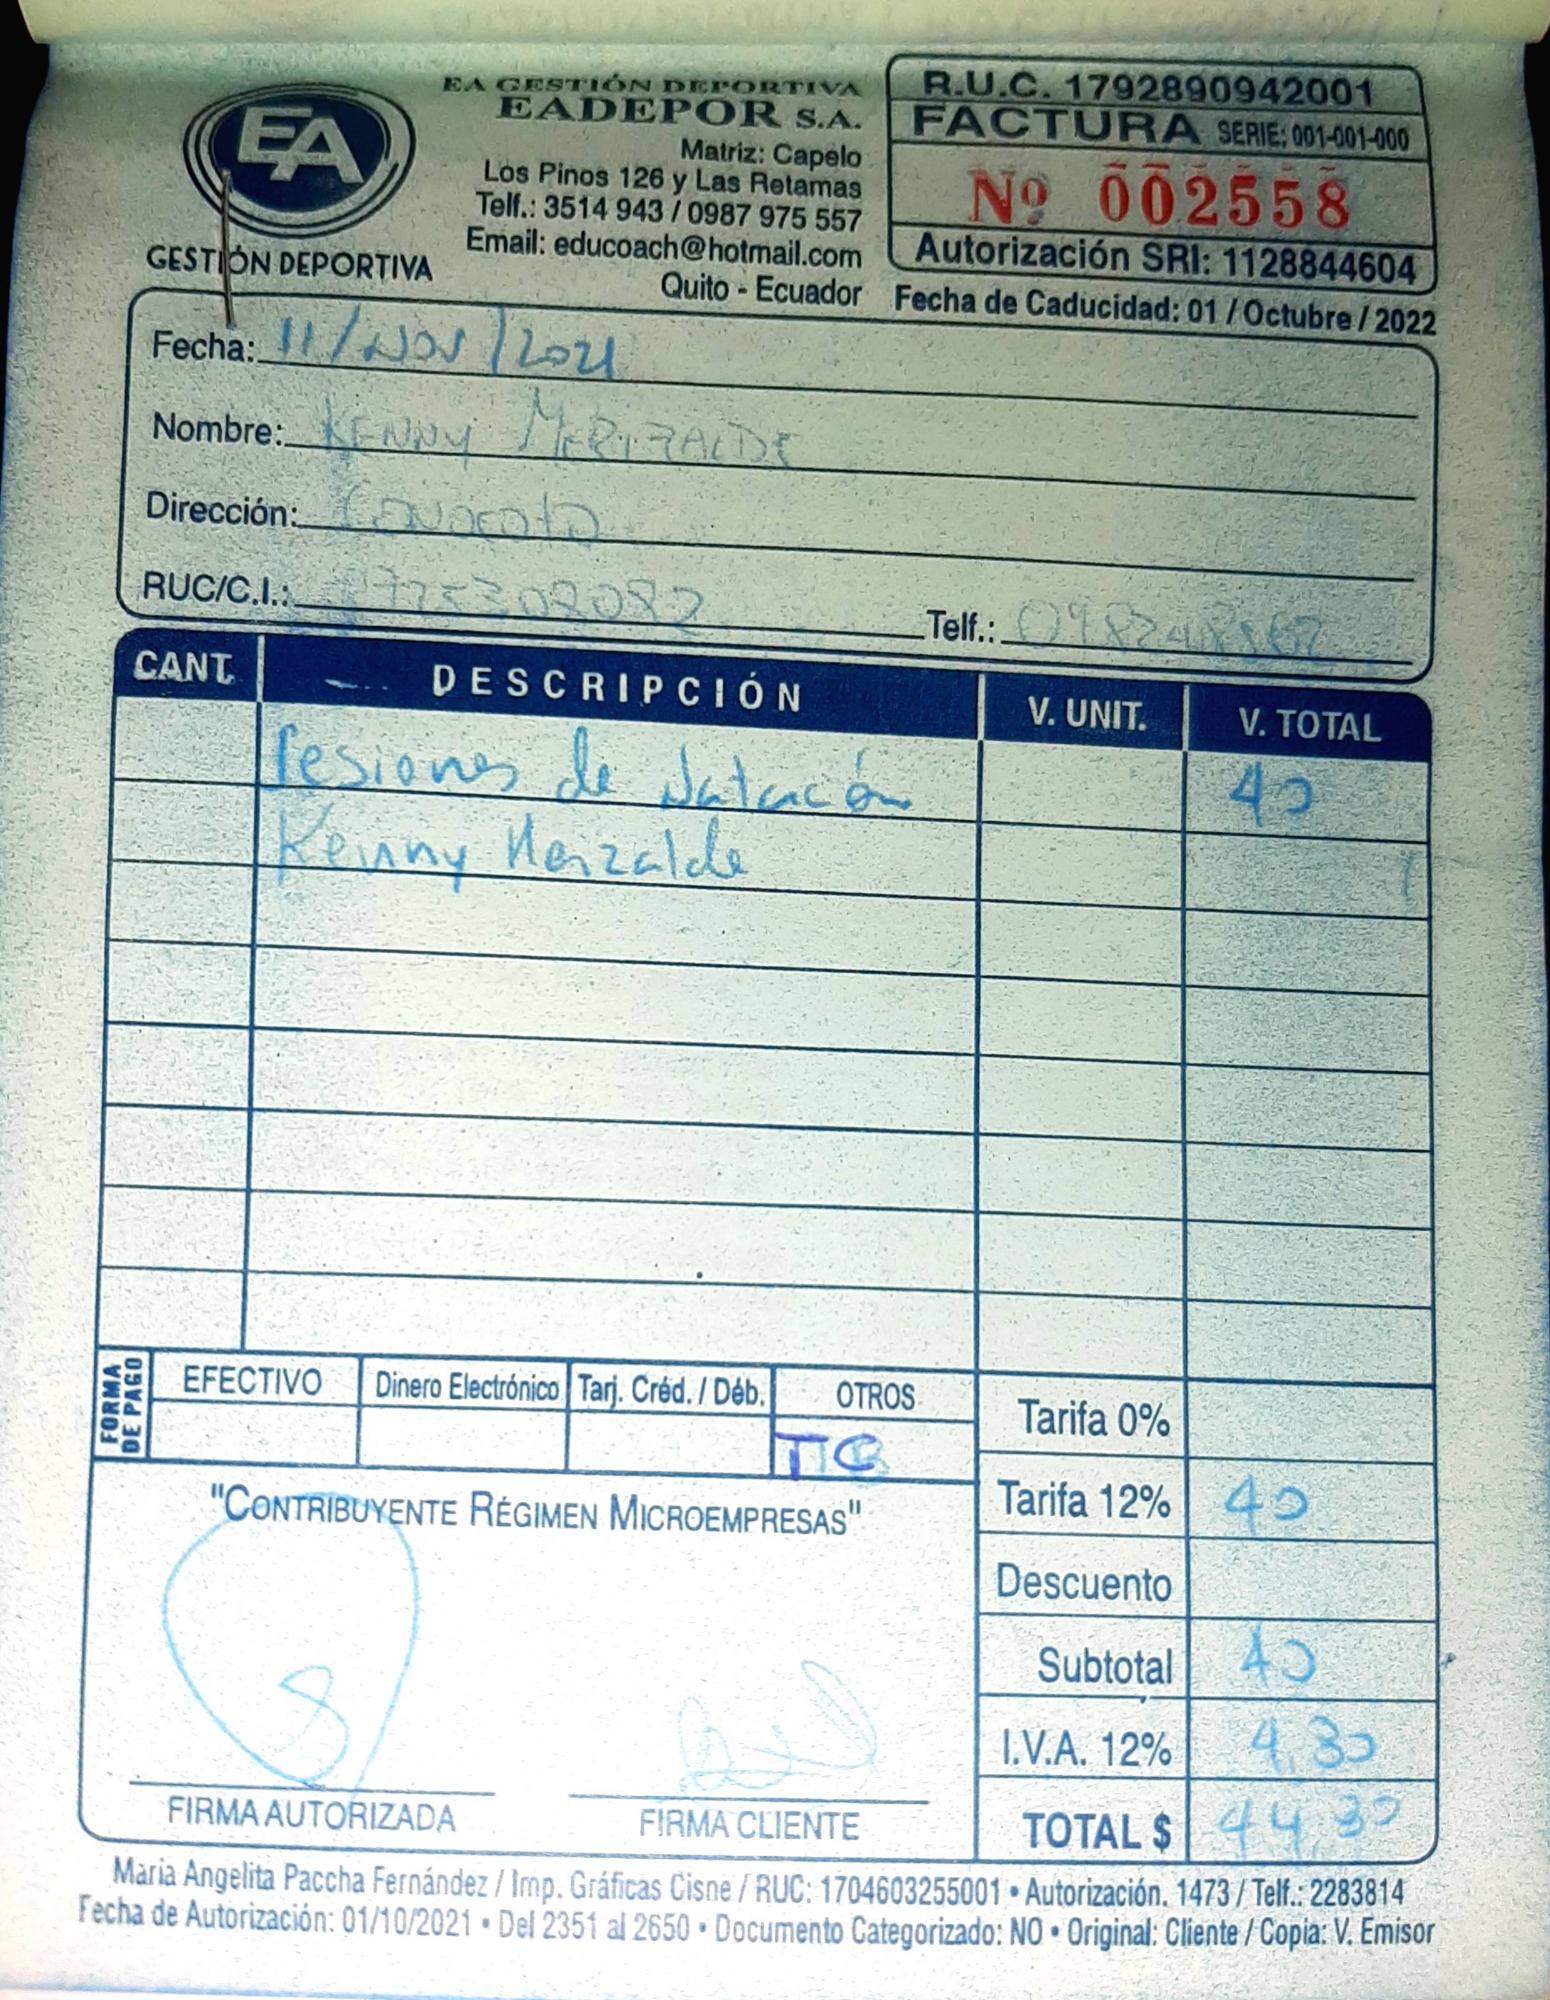 EA
GESTIÓN DEPORTIVA
EA GESTIÓN DEPORTIVA
EADEPOR S.A.
Matriz: Capelo
Los Pinos 126 y Las Retamas
Telf.: 3514 943 / 0987 975 557
Email: educoach@hotmail.com
Quito - Ecuador
R.U.C. 1792890942001
FACTURA SERIE: 001-001-000
Nº 002558
Autorización SRI: 1128844604
Fecha de Caducidad: 01 / Octubre / 2022
Fecha: 11/NOV/2021
Nombre: KENNY MERIZALDE
Dirección: Conocoto
RUC/C.I.:
Telf.:
CANT. DESCRIPCIÓN V. UNIT. V. TOTAL
Sesiones de Natación 40
Kenny Merizalde
FORMA DE PAGO
EFECTIVO Dinero Electrónico Tarj. Créd. / Déb. OTROS
TC
"CONTRIBUYENTE RÉGIMEN MICROEMPRESAS"
Tarifa 0%
Tarifa 12% 40
Descuento
Subtotal 40
I.V.A. 12% 4,30
TOTAL $ 44,30
FIRMA AUTORIZADA FIRMA CLIENTE
Maria Angelita Paccha Fernández / Imp. Gráficas Cisne / RUC: 1704603255001 • Autorización. 1473 / Telf.: 2283814
Fecha de Autorización: 01/10/2021 • Del 2351 al 2650 • Documento Categorizado: NO • Original: Cliente / Copia: V. Emisor